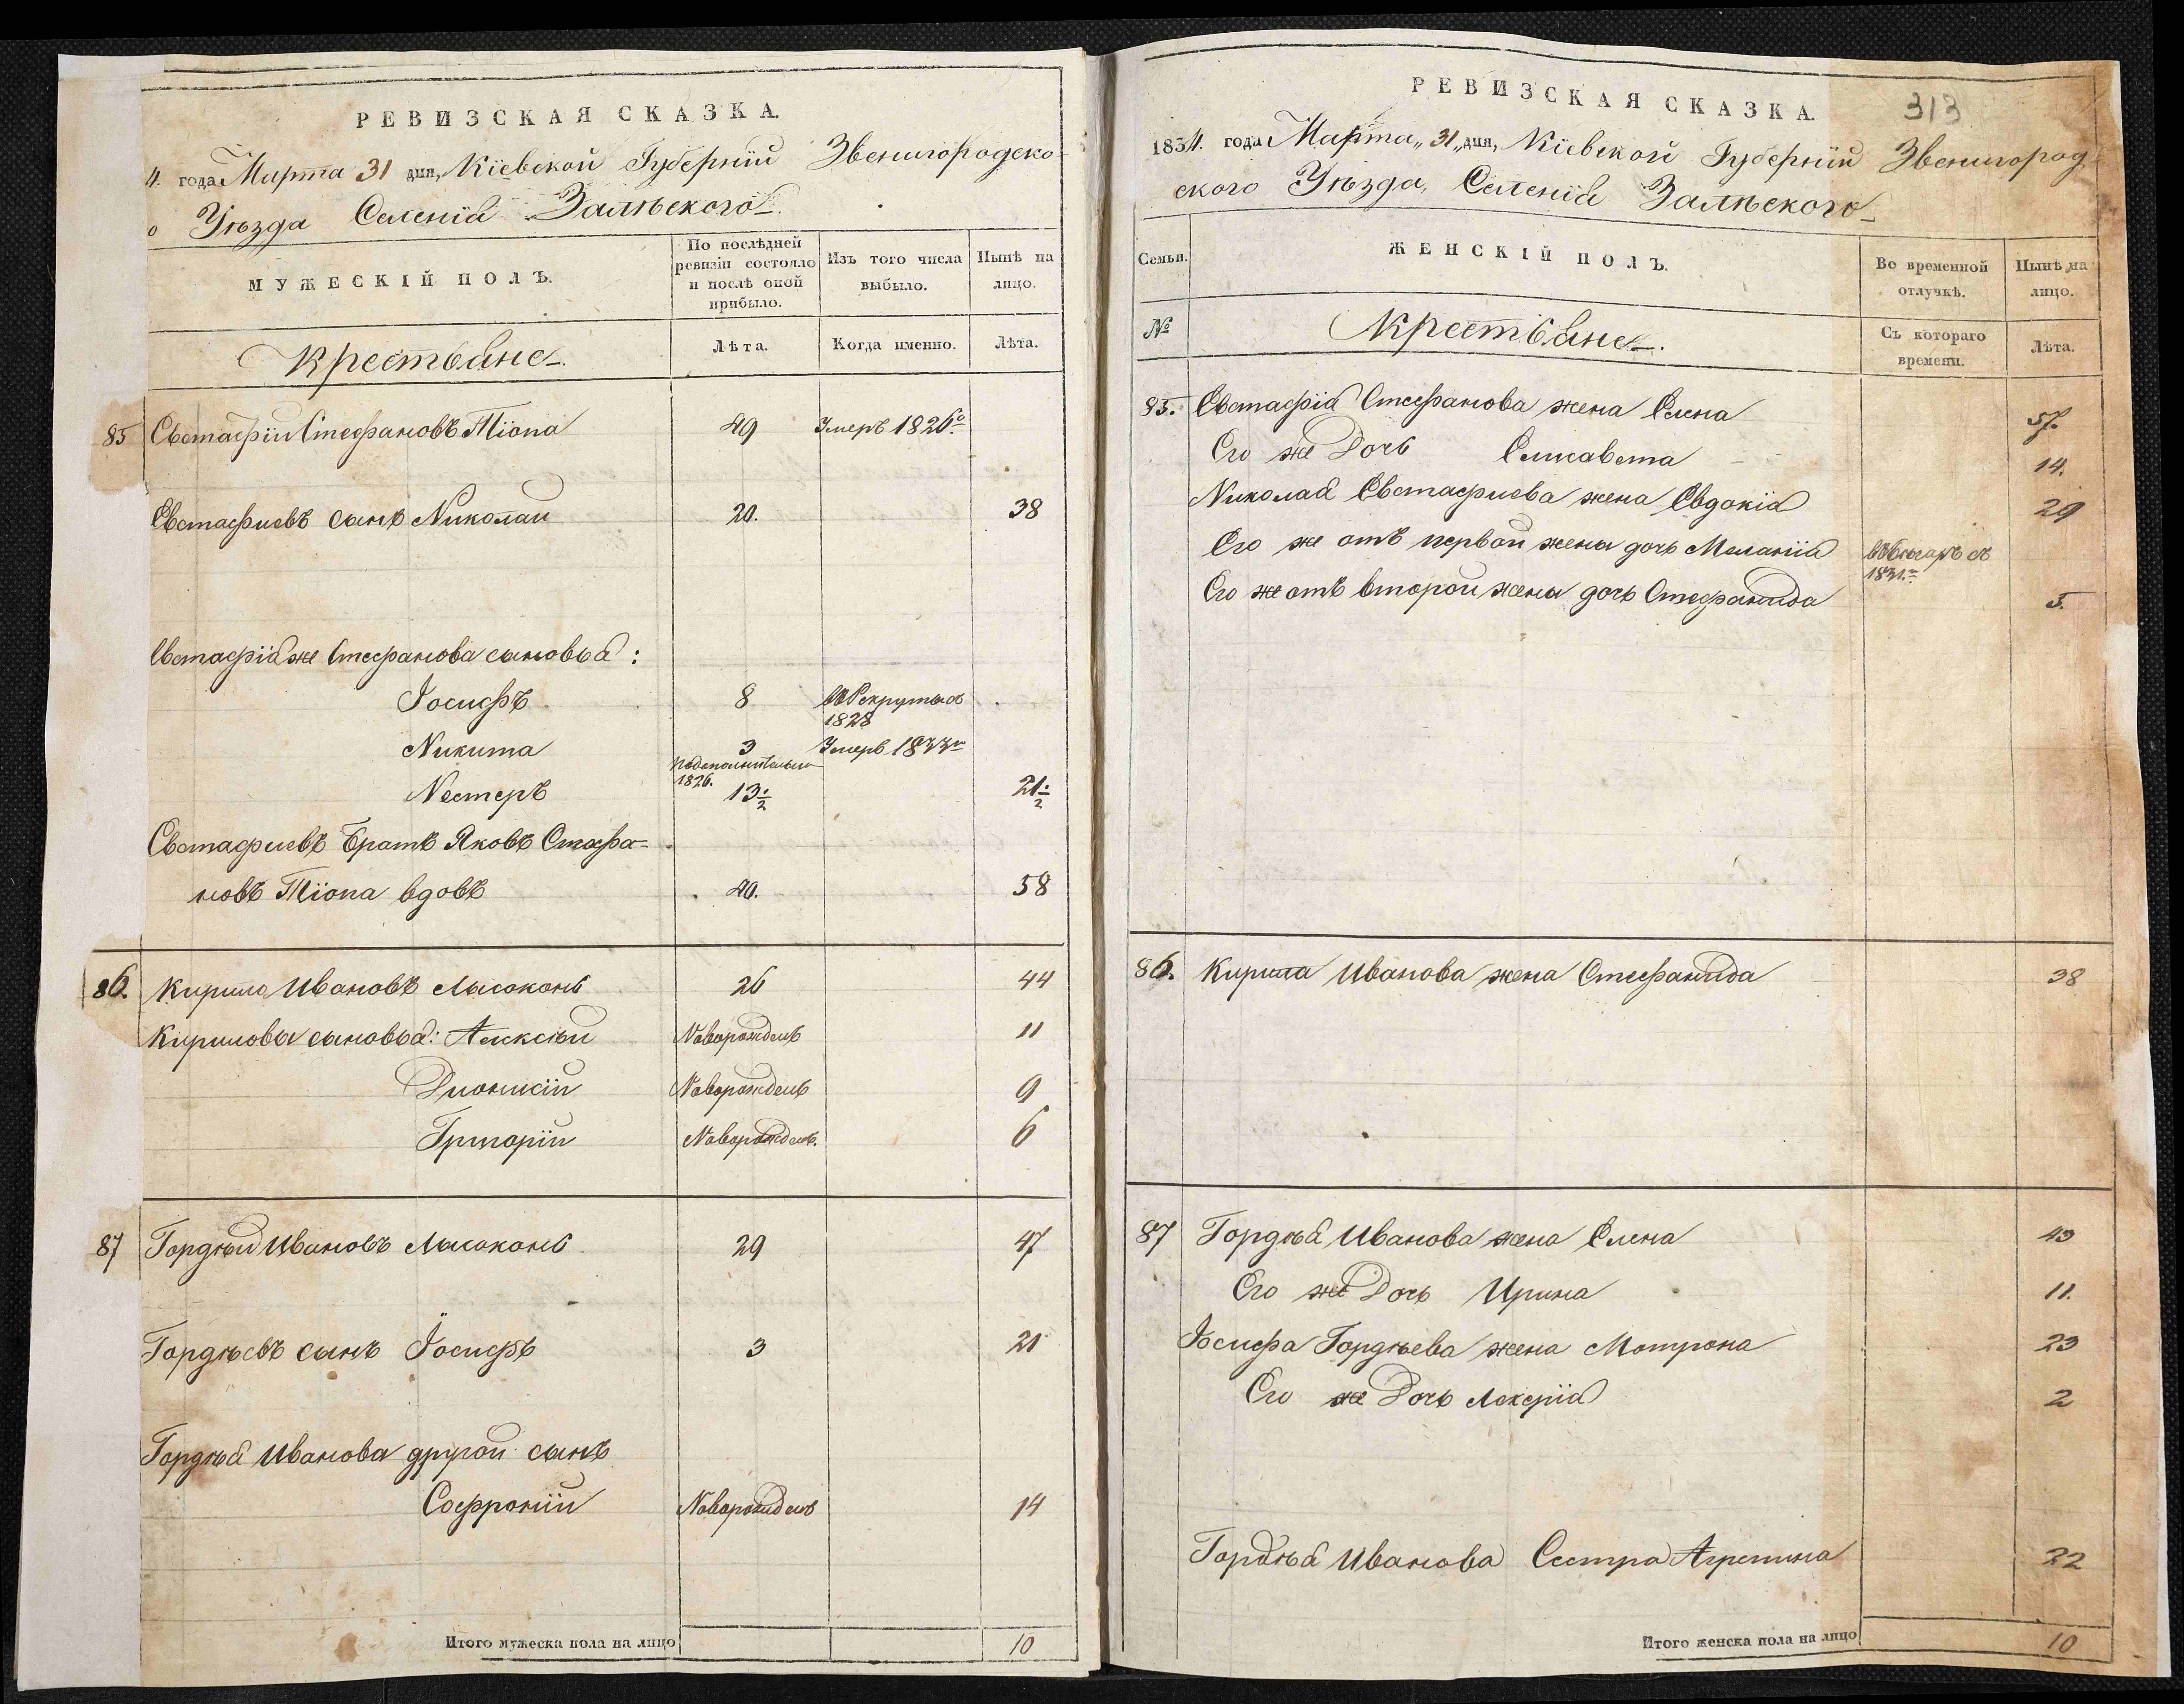 РЕВИЗСКАЯ СКАЗКА.
4. года Марта 31 дня, Кіевской Губерніи Звенигородско-
о Уѣзда Селенія Залѣского
МУЖЕСКІЙ ПОЛЪ.
По послѣдней ревизіи состояло и послѣ оной прибыло.
Изъ того числа выбыло.
Нынѣ на лицо.
Крестьяне.
Лѣта.
Когда именно.
Лѣта.
85 Евстафій Стефановъ Тіопа 49 Умеръ 1826го
Евстафиевъ сынъ Николай 20. 38
Евстафія же Стефанова сыновья:
Іосифъ 8 въ Рекруты въ
1828
Никита 3 Умеръ 1833го
1826.
Нестеръ 13 1/2 21 1/2
Евстафиевъ Братъ Яковъ Стефа=
новъ Тіопа вдовъ 40. 58
86. Кирило Ивановъ Лысоконь 26 44
Кириловы сыновья: Алексѣй Новорожденъ 11
Дионисій Новорожденъ 9
Григорій Новорожденъ. 6
87 Гордѣй Ивановъ Лысоконь 29 47
Гордѣевъ сынъ Іосифъ 3 21
Гордѣя Иванова другой сынъ
Софроній Новорожденъ 14
Итого мужеска пола на лицо 10
РЕВИЗСКАЯ СКАЗКА.
313
1834. года Марта „31„ дня, Кіевской Губерніи Звенигород-
ского Уѣзда, Селенія Залѣского
Семьи.
ЖЕНСКІЙ ПОЛЪ.
Во временной отлучкѣ.
Нынѣ на лицо.
№
Крестьяне.
Съ котораго времени.
Лѣта.
85. Евстафія Стефанова жена Елена 57.
Его же Дочь Елисавета 14.
Николая Евстафиева жена Евдокія 29
Его же отъ первой жены дочь Меланія въ бѣгахъ съ
1831го
Его же отъ второй жены дочь Стефанида 5.
86. Кирила Иванова жена Стефанида 38
87 Гордѣя Иванова жена Елена 43
Его же Дочь Ирина 11.
Іосифа Гордѣева жена Мотрона 23
Его же Дочь 2
Гордѣя Иванова Сестра Агрепина 22
Итого женска пола на лицо 10